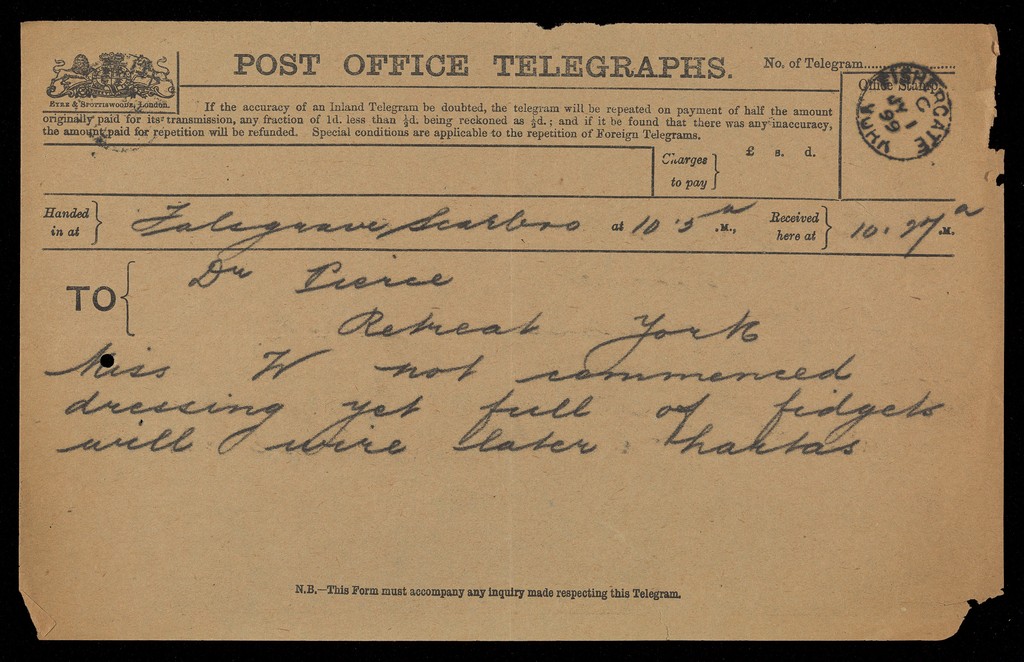 POST OFFICE TELEGRAPHS.
No. of Telegram
EYRE & SPOTTISWOODE, LONDON.
If the accuracy of an Inland Telegram be doubted, the telegram will be repeated on payment of half the amount
originally paid for its transmission, any fraction of 1d. less than ½d. being reckoned as ½d.; and if it be found that there was any inaccuracy,
the amount paid for repetition will be refunded. Special conditions are applicable to the repetition of Foreign Telegrams.
Office Stamp.
FISHERGATE
C
JY 1
99
YORK
Charges to pay
£ s. d.
Handed in at Falsgrave Scarbro at 10.5 a M., Received here at 10.27 a M.
TO Dr Pierce
Retreat York
Miss W not commenced
dressing yet full of fidgets
will wire later Thartas
N.B.—This Form must accompany any inquiry made respecting this Telegram.